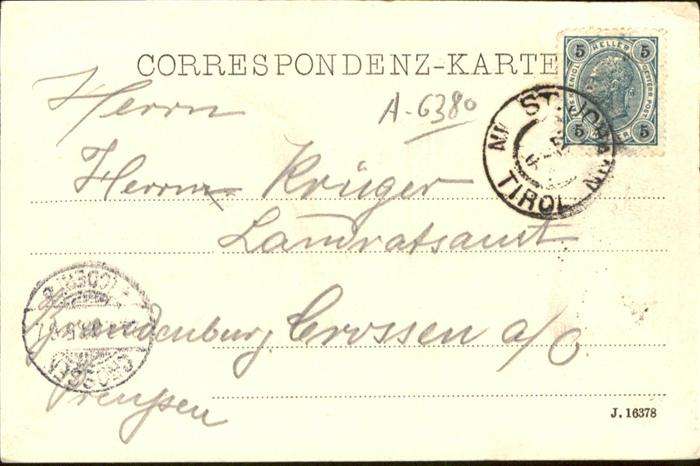 CORRESPONDENZ-KARTE
5 HELLER 5
5 5
ST. JOHANN IN TIROL
A-6380
Herrn
Herrn Krüger
Landratsamt
Brandenburg Crossen a/O
Preußen
CROSSEN
J. 16378